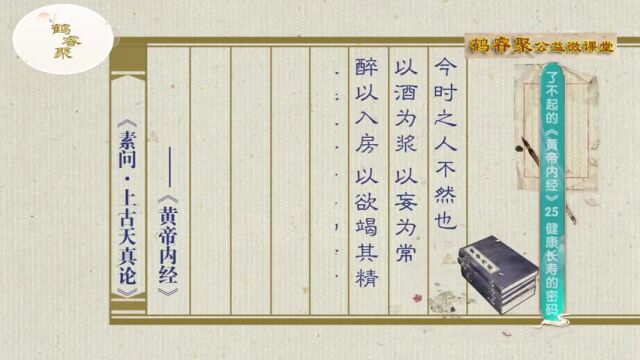 鹤睿聚
鹤睿聚公益微课堂
了不起的《黄帝内经》25 健康长寿的密码
今时之人不然也
以酒为浆 以妄为常
醉以入房 以欲竭其精
——《黄帝内经》
《素问·上古天真论》